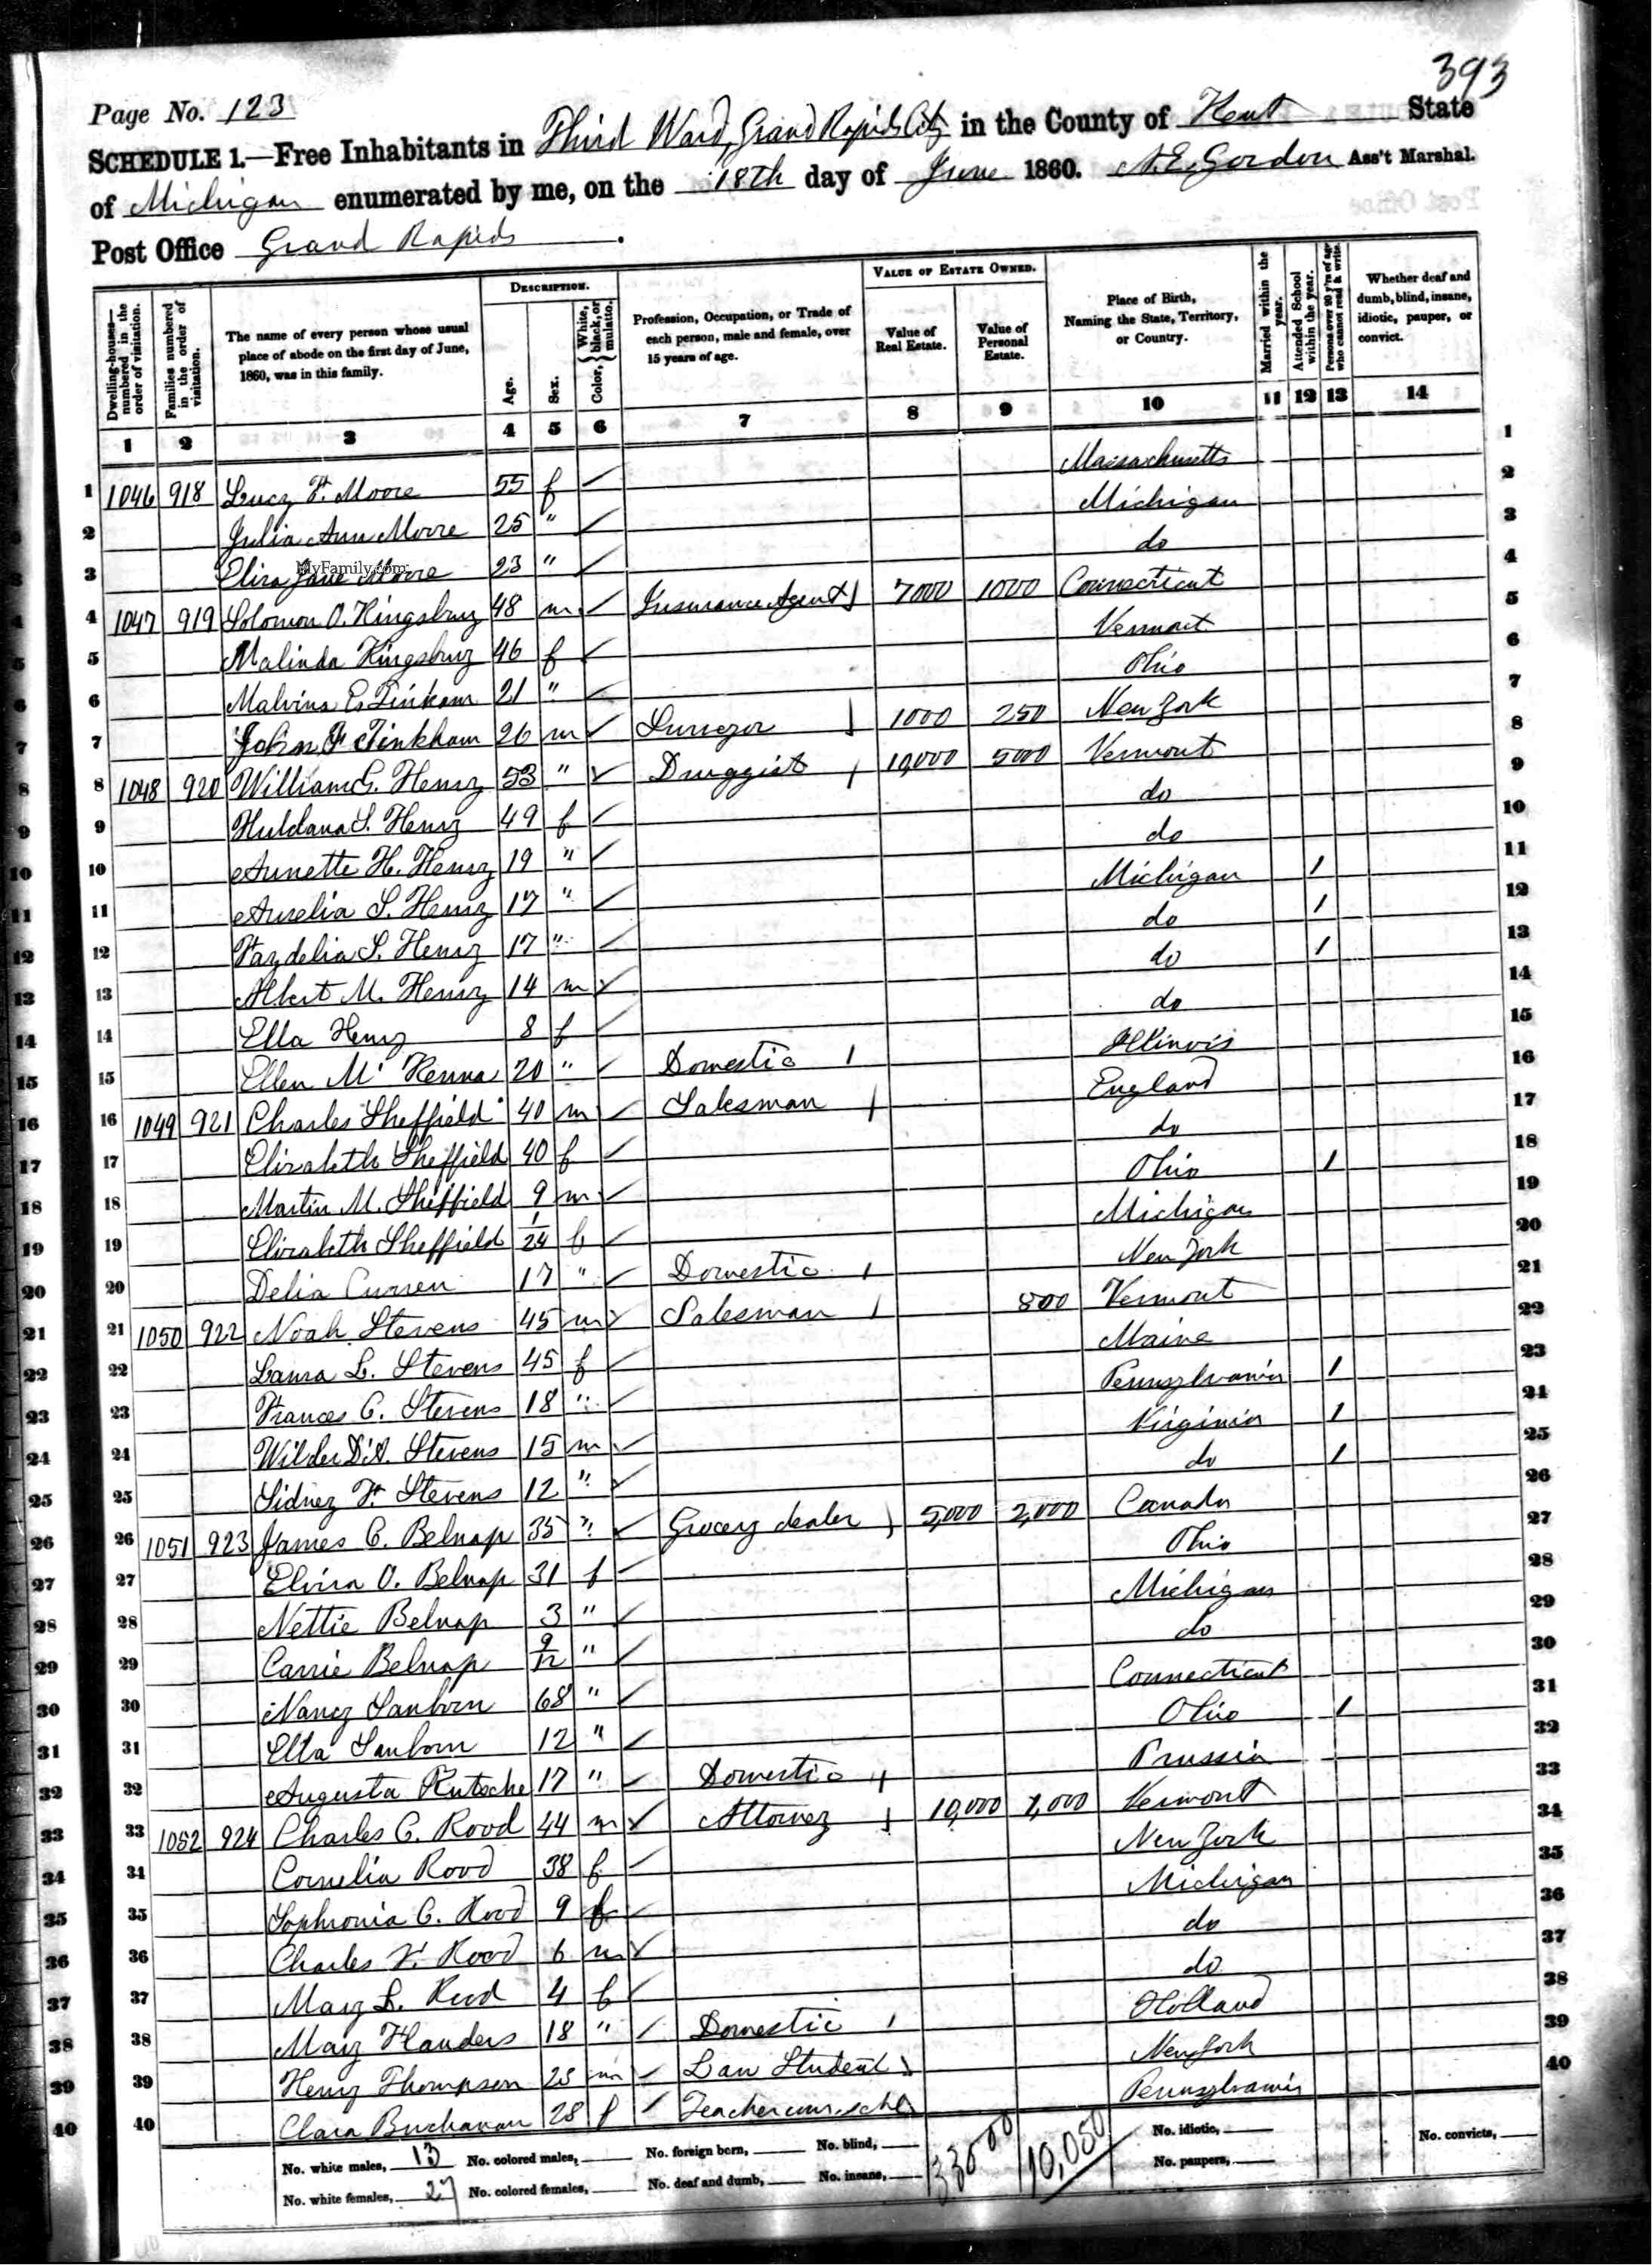 393
Page No. 123
SCHEDULE 1.—Free Inhabitants in Third Ward, Grand Rapids City in the County of Kent State
of Michigan enumerated by me, on the 18th day of June 1860. A. E. Gordon Ass't Marshal.
Post Office Grand Rapids.
Dwelling-houses—numbered in the order of visitation. Families numbered in the order of visitation. The name of every person whose usual place of abode on the first day of June, 1860, was in this family. DESCRIPTION. Age. Sex. Color, { White, black, or mulatto. Profession, Occupation, or Trade of each person, male and female, over 15 years of age. VALUE OF ESTATE OWNED. Value of Real Estate. Value of Personal Estate. Place of Birth, Naming the State, Territory, or Country. Married within the year. Attended School within the year. Persons over 20 y'rs of age who cannot read & write. Whether deaf and dumb, blind, insane, idiotic, pauper, or convict.
1 2 3 4 5 6 7 8 9 10 11 12 13 14
1 1046 918 Lucy F. Moore 55 f Massachusetts 1
2 Julia Ann Moore 25 " Michigan 2
3 Eliza Jane Moore 23 " do 3
MyFamily.com
4 1047 919 Solomon O. Kingsbury 48 m Insurance Agent 7000 1000 Connecticut 4
5 Malinda Kingsbury 46 f Vermont 5
6 Malvina E. Tinkam 21 " Ohio 6
7 John F Tinkham 26 m Surveyor 1000 250 New York 7
8 1048 920 William G. Henry 53 " Druggist 10,000 5000 Vermont 8
9 Huldana S. Henry 49 f do 9
10 Annette H. Henry 19 " do 10
11 Aurelia S. Henry 17 " Michigan 1 11
12 Faydelia S. Henry 17 " do 1 12
13 Albert M. Henry 14 m do 1 13
14 Ella Henry 8 f do 14
15 Ellen McKenna 20 " Domestic Illinois 15
16 1049 921 Charles Sheffield 40 m Salesman England 16
17 Elizabeth Sheffield 40 f do 17
18 Martin M. Sheffield 9 m Ohio 1 18
19 Elizabeth Sheffield 1/24 f Michigan 19
20 Delia Curren 17 " Domestic New York 20
21 1050 922 Noah Stevens 45 m Salesman 800 Vermont 21
22 Laura L. Stevens 45 f Maine 22
23 Frances C. Stevens 18 " Pennsylvania 1 23
24 Wilder D. A. Stevens 15 m Virginia 1 24
25 Sidney F. Stevens 12 " do 1 25
26 1051 923 James C. Belnap 35 " Grocery dealer 5,000 2,000 Canada 26
27 Elvira O. Belnap 31 f Ohio 27
28 Nettie Belnap 3 " Michigan 28
29 Carrie Belnap 9/12 " do 29
30 Nancy Sanborn 68 " Connecticut 30
31 Ella Sanborn 12 " Ohio 1 31
32 Augusta Rutsche 17 " Domestic Prussia 32
33 1052 924 Charles C. Rood 44 m Attorney 10,000 1,000 Vermont 33
34 Cornelia Rood 38 f New York 34
35 Sophronia C. Rood 9 f Michigan 35
36 Charles Rood 6 m do 36
37 Mary L. Rood 4 f do 37
38 Mary Flanders 18 " Domestic Holland 38
39 Henry Thompson 23 m Law Student New York 39
40 Clara Buchanan 28 f Teacher Pennsylvania 40
No. white males, 13 No. colored males, No. foreign born, No. blind, 33000 10,050 No. idiotic, No. convicts,
No. white females, 27 No. colored females, No. deaf and dumb, No. insane, No. paupers,